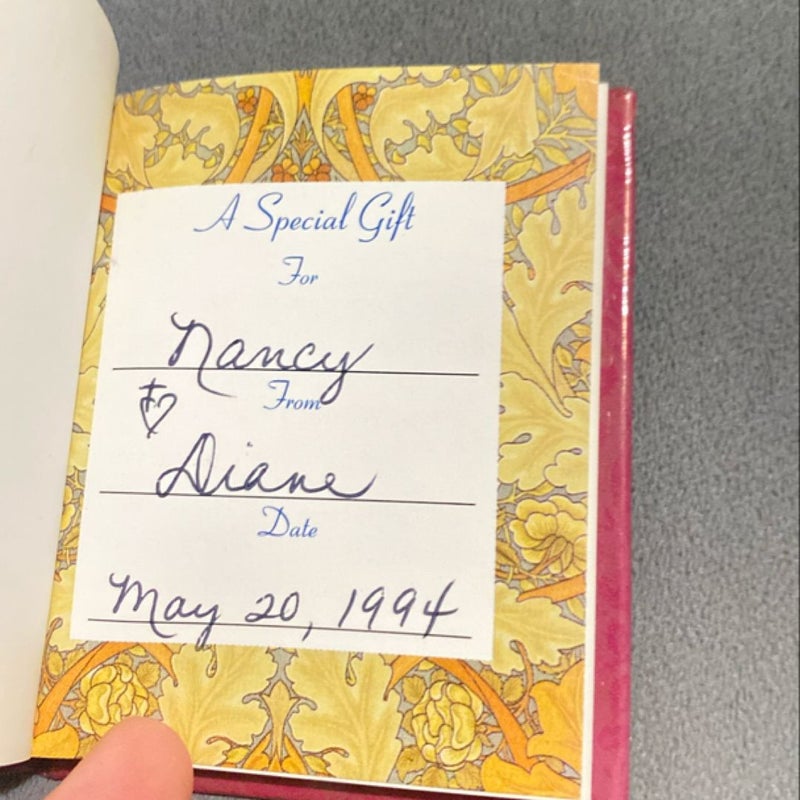 A Special Gift
For
Nancy
From
Diane
Date
May 20, 1994